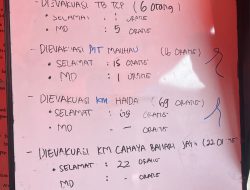 - DIEVAKUASI TB TCP (6 orang)
• SELAMAT : 1 ORANG
• MD : 5 ORANG
- DIEVAKUASI PIT MAUHAU (16 ORANG)
• SELAMAT : 15 ORANG
• MD : 1 ORANG
- DIEVAKUASI KM HAIDA (69 ORANG)
• SELAMAT : 69 ORANG
• MD : - ORANG
- DIEVAKUASI KM CAHAYA BAHARI JAYA (22 O
• SELAMAT : 22 ORANG
MD : - ORANG